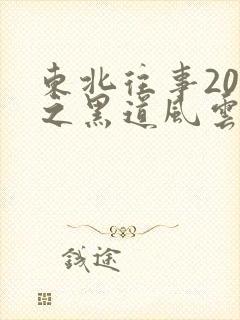 東北往事20
之黑道風雲
錢途